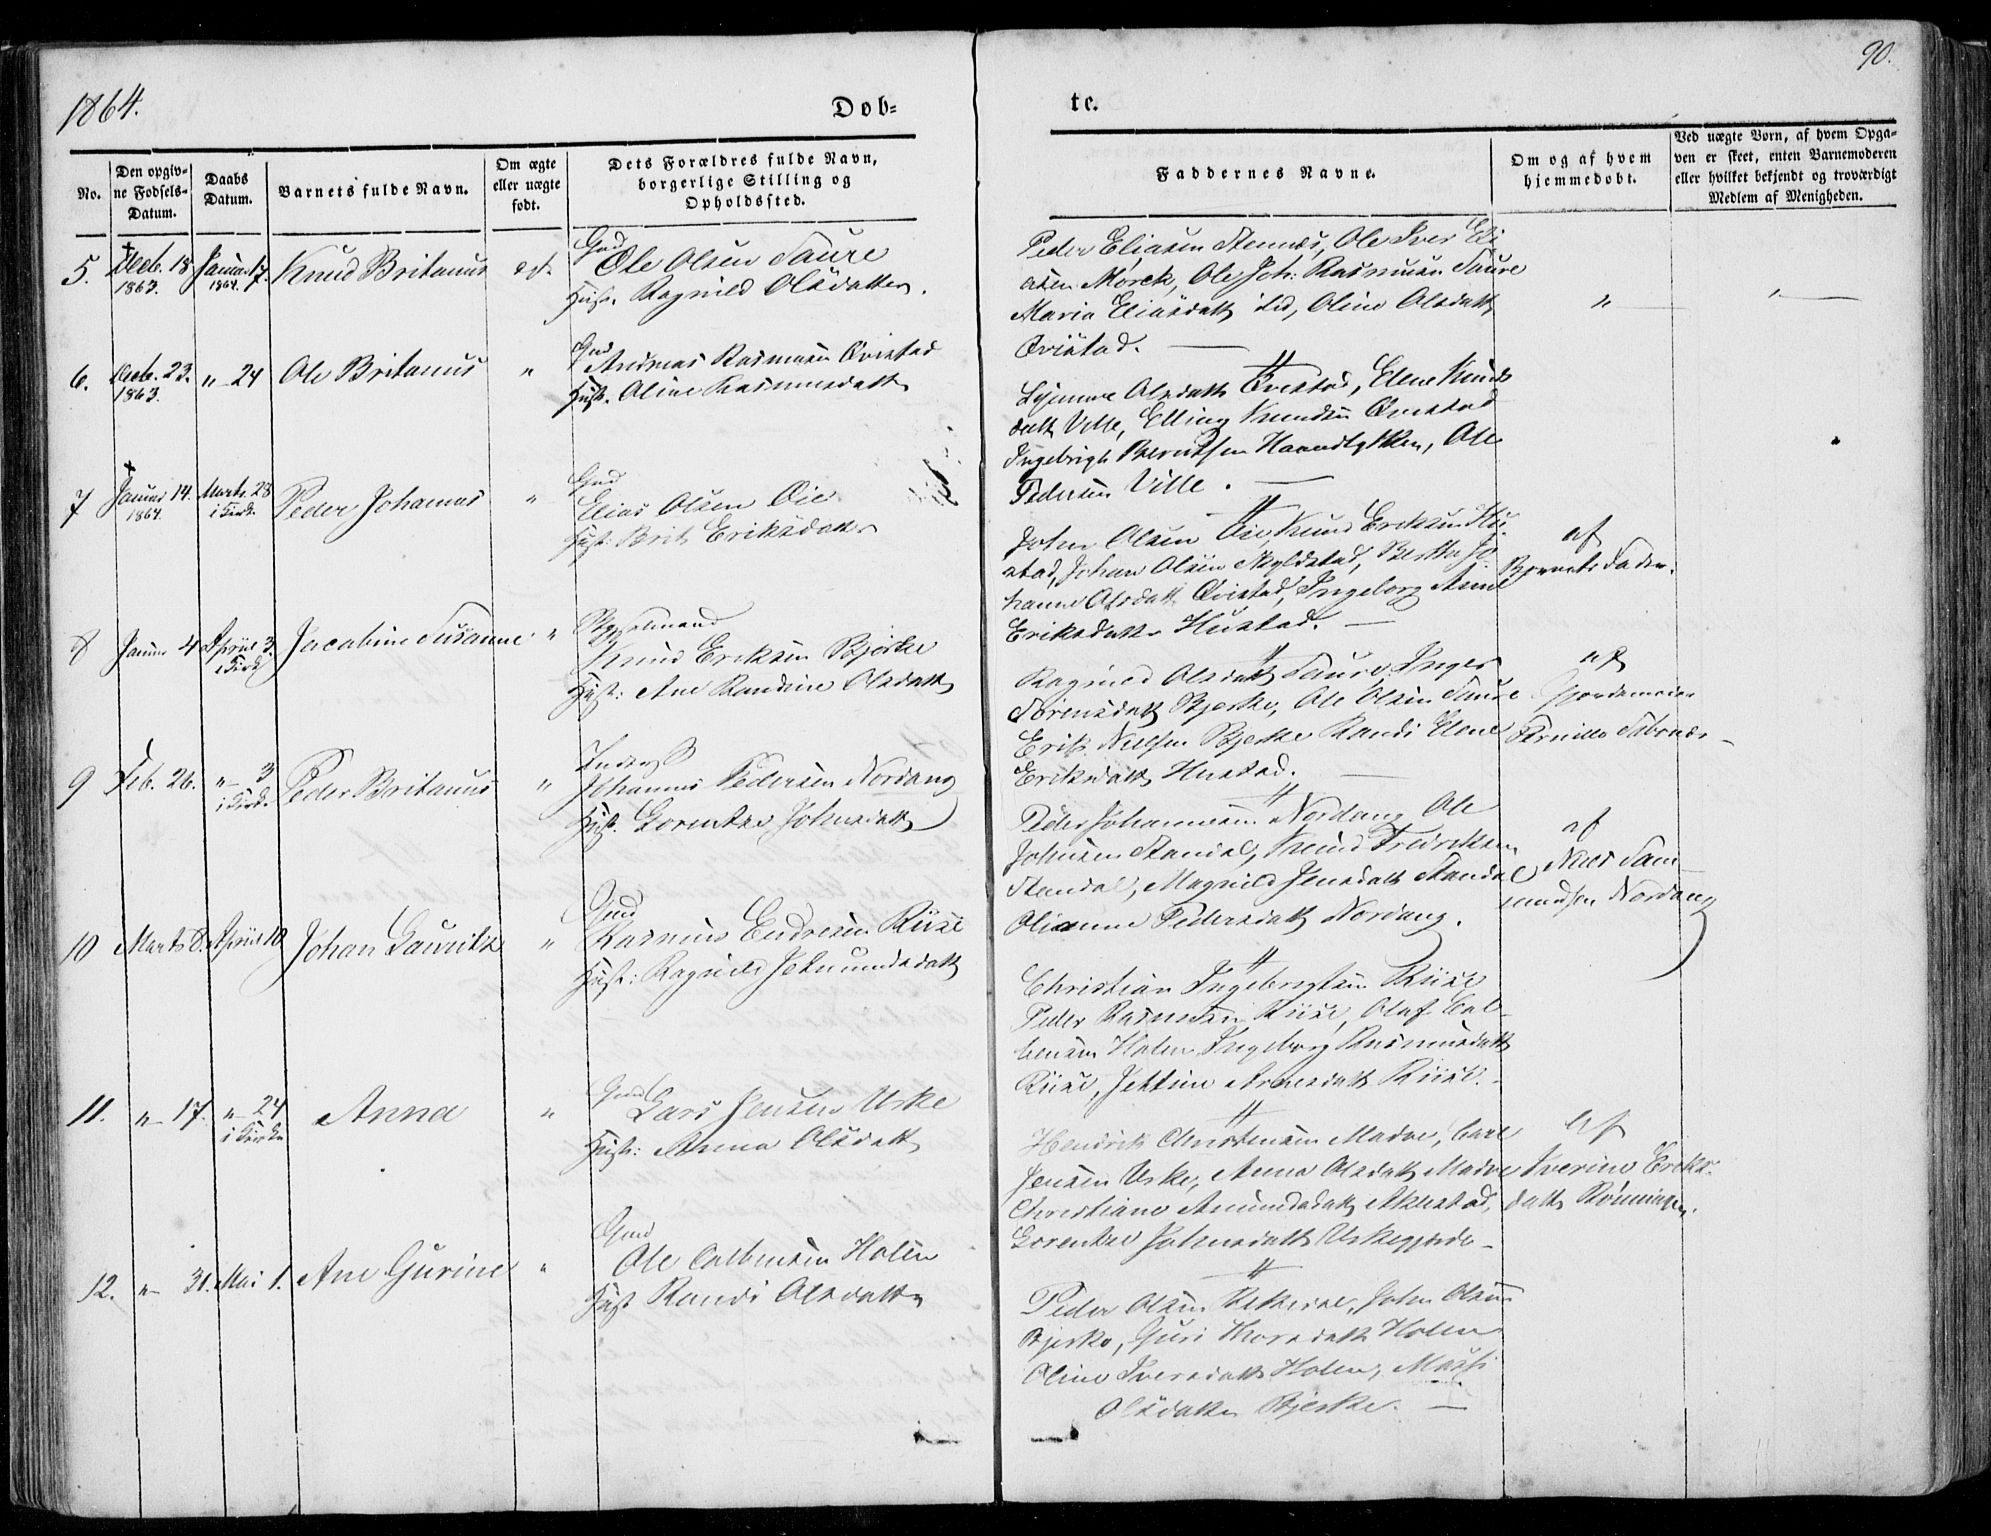 1864.
Døb-
te.
90.
No.
Den opgiv-
ne Fødsels-
Datum.
Daabs
Datum.
Barnets fulde Navn.
Om ægte
eller uægte
født.
Dets Forældres fulde Navn,
borgerlige Stilling og
Opholdssted.
Faddernes Navne.
Om og af hvem
hjemmedøbt.
Ved uægte Børn, af hvem Opga-
ven er skeet, enten Barnemoderen
eller hvilket bekjendt og troværdigt
Medlem af Menigheden.
5. Deceb. 18 1863. Januar 17. 1864. Knud Britanus egt.
Gmd
Ole Olsen Saure
Hust. Ragnild Olsdatter.
Peder Eliasen Stennes, Ole Iver Eli
asen Morck, Ole Joh: Rasmusen Saure
Maria Eliasdatt Lid, Oline Olsdatt " "
Qvistad.
6. Deceb. 23. 1863. " 24 Ole Britanus "
Gmd Andreas Rasmusen Qvistad
Hust. Oline Rasmusdatt
Olsdatt Qvistad, Elene Knuds
datt Ville, Elling Knudsen Qvistad
Ingebrigt Berntsen, Ole
Pedersen Ville.
7 Januar 14. 1864. Marts. 28 i Kirk. Peder Johannes "
Gmd
Elias Olsen Øie
Hust: Brit Eriksdatter
John Olsen Øie, Knud Eriksen Hu
stad, Johan Olsen, Berthe Jo
hanne Olsdatt Qvistad, Ingeborg Anne
Eriksdatter Hustad.
af
Barnets Fader.
8 Januar 4 April 3. i Kirk Jacobine Susanne "
Knud Eriksen Bjerke
Hust: Ane Randine Olsdatt
Ragnild Olsdatt Saure, Inger
Sørensdatt Bjerke, Ole Olsen Saure
Erik Nielsen Bjerke Randi Elene
Eriksdatt Hustad.
af
Gjordemoder
Pernille
9 Feb. 26. " 3 i Kirk. Peder Britanus "
Inderst
Johannes Pedersen Nordang
Hust. Lorentze Johnsdatt
Peder Johannesen Nordang, Ole
Johnsen Standal, Knud Fredriksen
Standal, Magnild Jensdatt Standal
Olianne Pedersdatt Nordang.
af
Niels Sam
undsen Nordang
10 Marts 8. April 10 Johan Lauritz "
Gmd
Rasmus Endresen Riise
Hust: Ragnild Jetmundsdatt
Christian Ingebrigtsen Riise
Peder Rasmusen Riise, Olaf Col-
bensen Holen, Ingeborg Rasmusdatt
Riise, Jettine Arnesdatt Riise.
11. " 17. " 24 i Kirke Anna "
Gmd
Lars Jensen Urke
Hust: Anna Olsdatt
Hendrik Christensen Madve, Carl
Jensen Urke, Anna Olsdatt Madve
Christiane Amundsdatt Aklestad,
Lorentze Johnsdatt Urkegjerde
af
Iverine Eriks-
datt Rønningen.
12. " 31. Mai 1. Ane Gurine "
Gmd
Ole Colbensen Holen
Hust Randi Olsdatt
Peder Olsen, John Olsen
Bjerke, Guri Thoresdatt Holen
Oline Iversdatt Holen, Marthe
Olsdatter Bjerke.